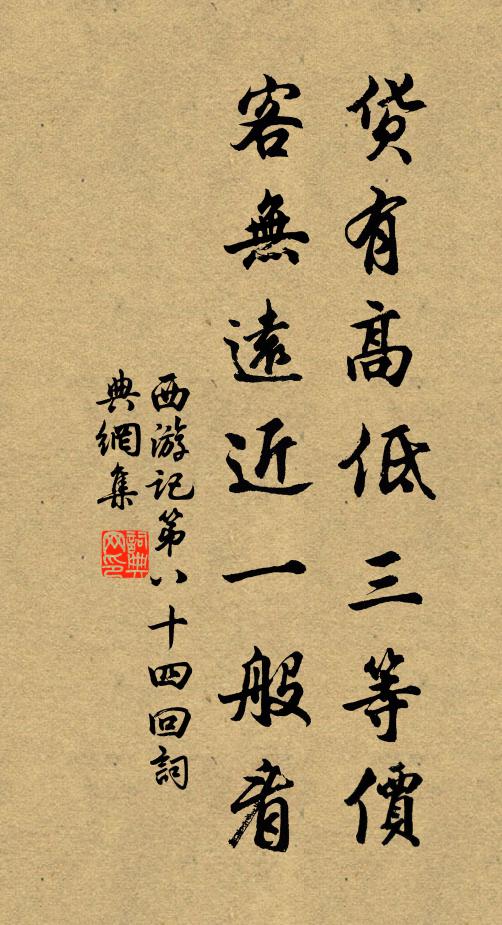 货有高低三等價
客無遠近一般看
西游记第八十四回詞
典網集
詞典
网印